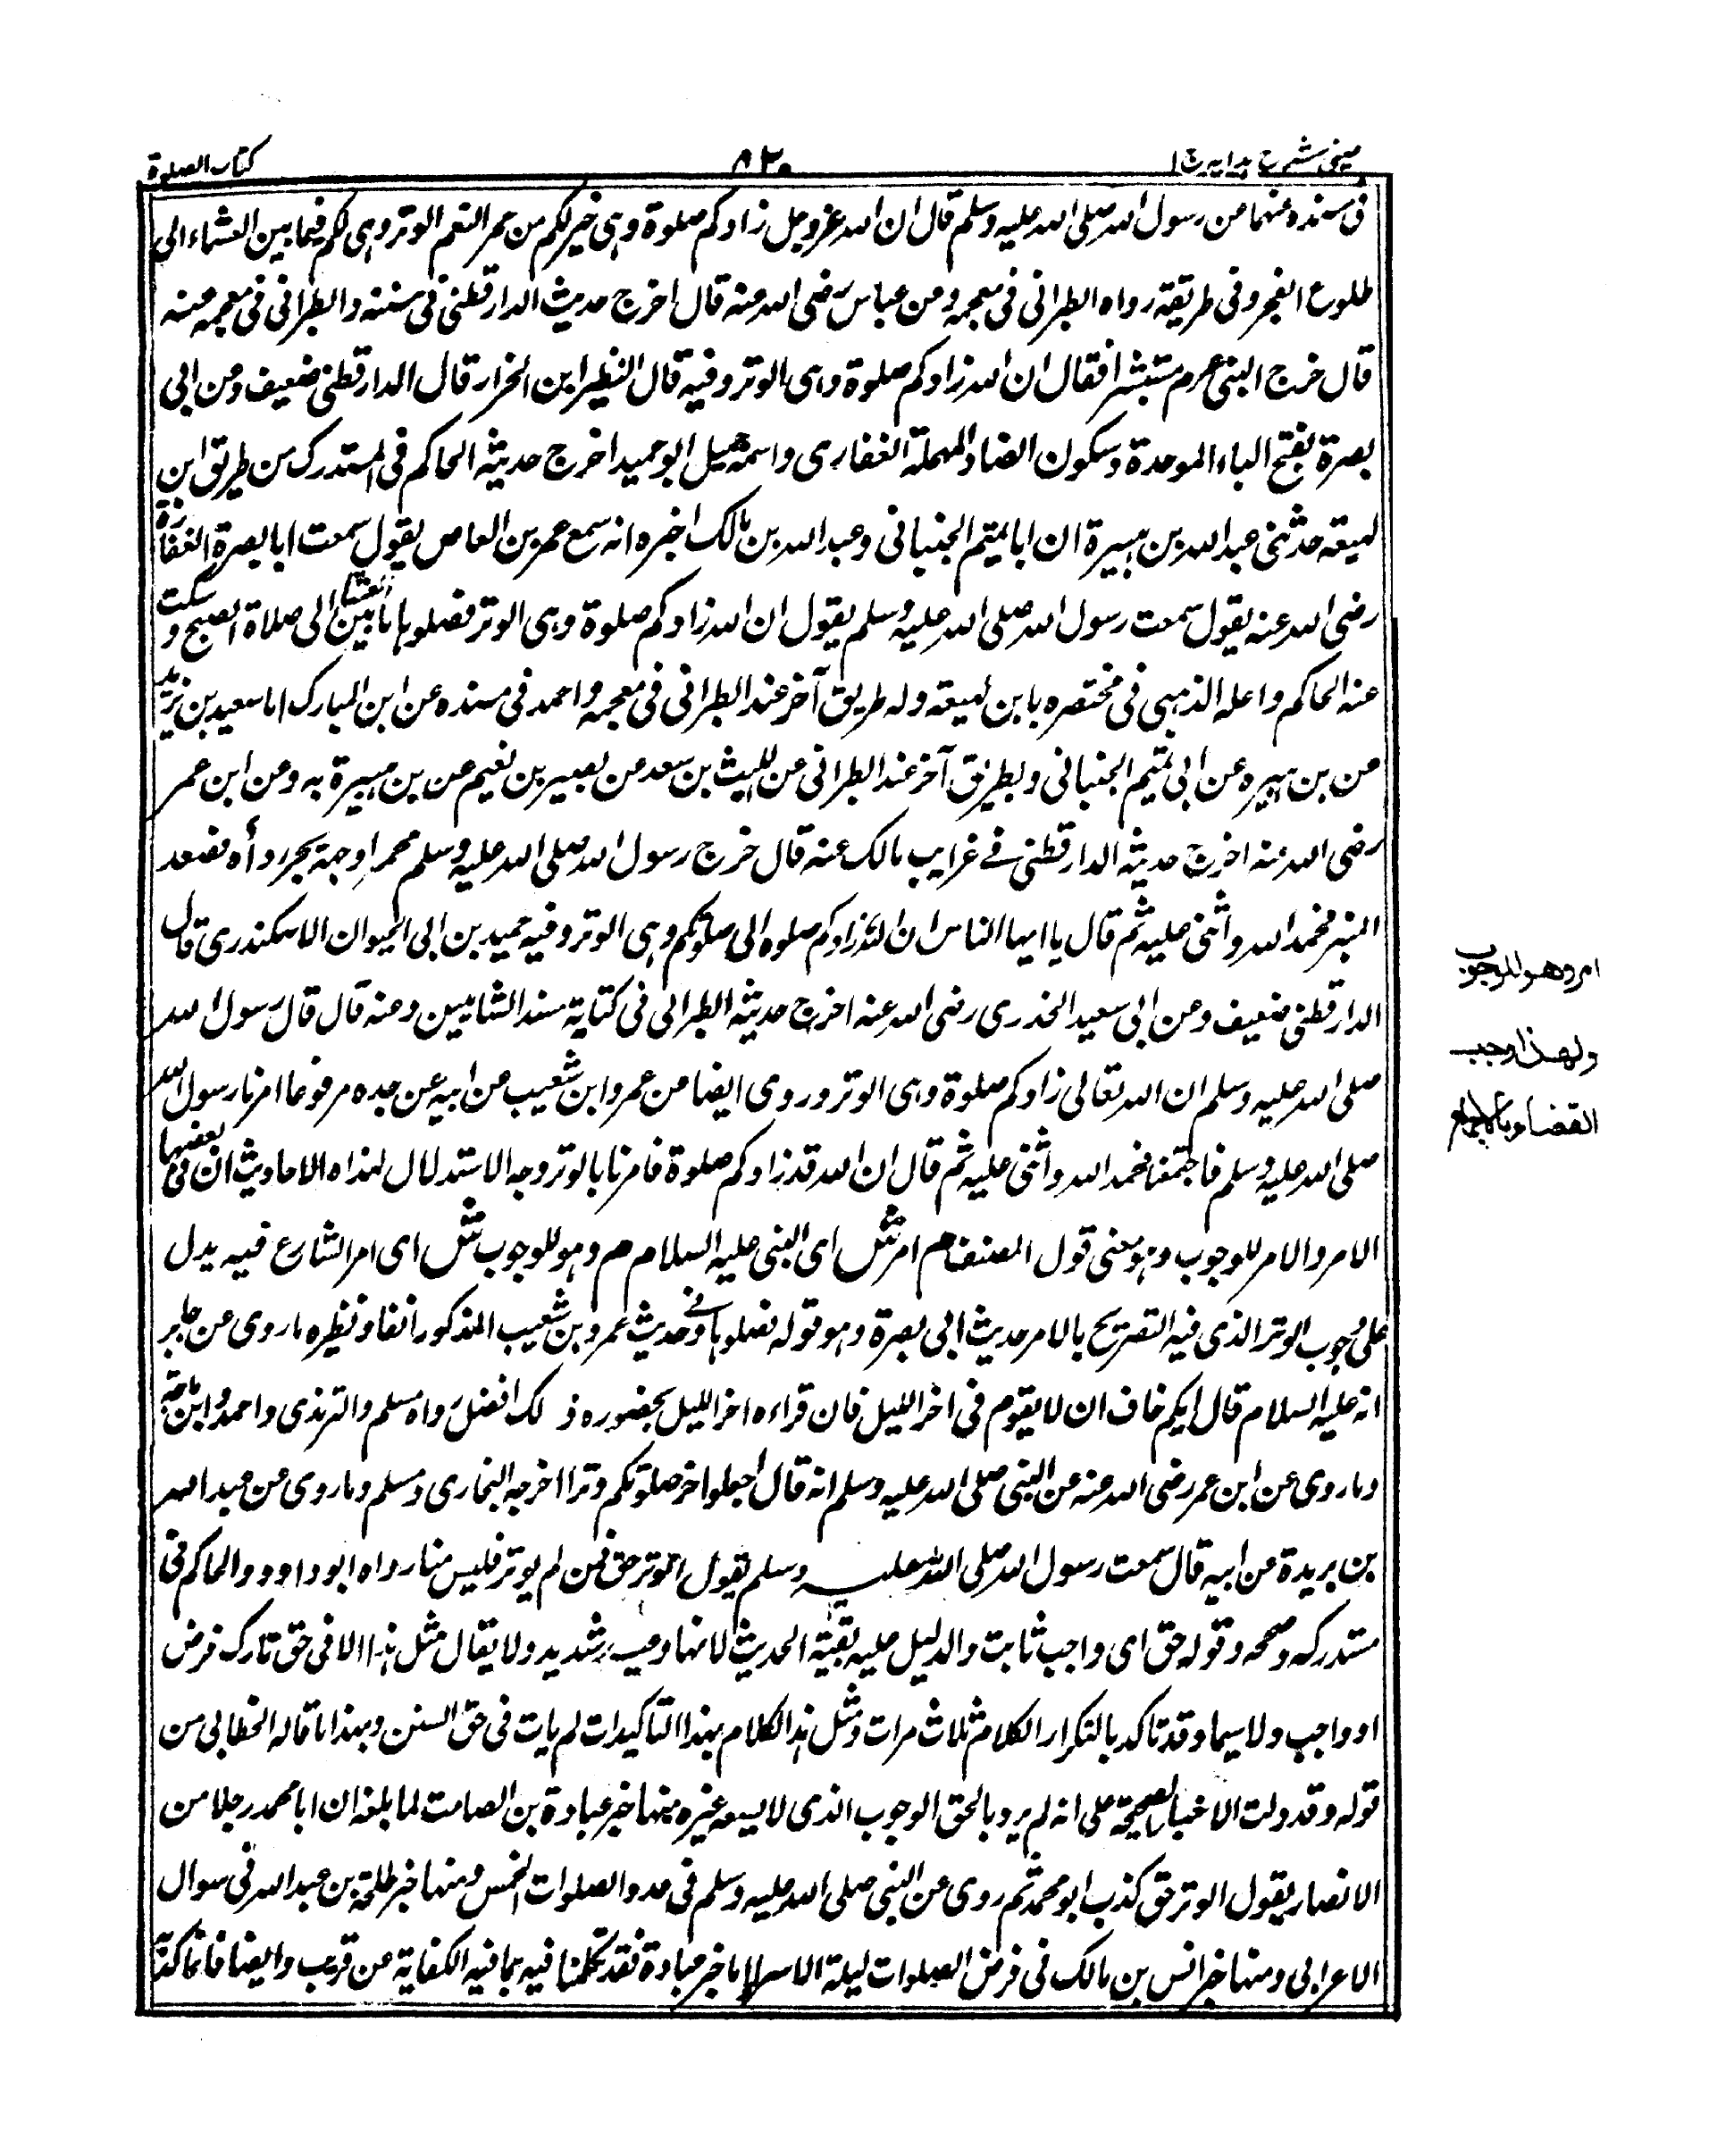 عینی شرح ہدایہ ج ۱
۸۲۰
کتاب الصلوۃ
فی سندہ عنہما من رسول اللہ صلی اللہ علیہ وسلم قال ان اللہ عزوجل زادکم صلوۃ وہی خیر لکم من حمر النعم الوتر وہی لکم فیما بین العشاء الی
طلوع الفجر وفی طریقۃ رواہ الطبرانی فی معجمہ ومن عباس رضی اللہ عنہ قال اخرج حدیثہ الدارقطنی فی سننہ والطبرانی فی معجمہ عنہ
قال خرج النبی عرم مستبشرا فقال ان اللہ زادکم صلوۃ وہی الوتر وفیہ قال النظیر ابن الخزار قال الدارقطنی ضعیف ومن ابی
بصرۃ بفتح الباء الموحدۃ وسکون الضاد المہملۃ الغفاری واسمہ جمیل ابوحمید اخرج حدیثہ الحاکم فی المستدرک من طریق ابن
لہیعۃ حدثنی عبد اللہ بن ہبیرۃ ان ابا تمیم الجنبانی وعبد اللہ بن مالک اخبرہ انہ سمع عمر بن العاص یقول سمعت ابا بصرۃ الغفاری
رضی اللہ عنہ یقول سمعت رسول اللہ صلی اللہ علیہ وسلم یقول ان اللہ زادکم صلوۃ وہی الوتر فصلوہا ما بین العشاء الی صلاۃ الصبح وسکت
عنہ الحاکم واعلہ الذہبی فی مختصرہ بابن لہیعۃ ولہ طریق آخر عند الطبرانی فی معجمہ واحمد فی مسندہ عن ابن المبارک اما سعید بن یزید
من بن ہبیرہ عن ابی تمیم الجنبانی وبطریق آخر عند الطبرانی عن اللیث بن سعد من بعبیر بن نعیم عن بن ہبیرۃ بہ ومن ابن عمر
رضی اللہ عنہ اخرج حدیثہ الدارقطنی فے غرایب مالک عنہ قال خرج رسول اللہ صلی اللہ علیہ وسلم محمرا وجہہ یجر رداہ فصعد
المنبر فحمد اللہ واثنی علیہ ثم قال یا ایہا الناس ان اللہ زادکم صلوہ الی صلوتکم وہی الوتر وفیہ حمید بن ابی الحیوان الاسکندری قال
الدارقطنی ضعیف ومن ابی سعید الخدری رضی اللہ عنہ اخرج حدیثہ الطبرانی فی کتابۃ مسند الشامیین وعنہ قال قال رسول اللہ
صلی اللہ علیہ وسلم ان اللہ تعالی زادکم صلوۃ وہی الوتر وروی ایضا من عمرو ابن شعیب من ابیہ عن جدہ مرفوعا امرنا رسول اللہ
صلی اللہ علیہ وسلم فاجتمعنا فحمد اللہ واثنی علیہ ثم قال ان اللہ قد زادکم صلوۃ فامرنا بالوتر وجہ الاستدلال لہذاہ الاحادیث ان فی بعضہا
الامر والامر للوجوب وہو معنی قول المصنف م امر ش ای النبی علیہ السلام م وہو للوجوب ش ای امر الشارع فیہ یدل
علی وجوب الوتر الذی فیہ التصریح بالامر حدیث ابی بصرۃ وہو قولہ فصلوہا وفے حدیث عمرو بن شعیب المذکور انفا ونظیرہ ما روی عن جابر
انہ علیہ السلام قال ایکم خاف ان لا یقوم فی اخر اللیل فان قراءہ اخر اللیل بحضورہ ذ لک افضل رواہ مسلم والترمذی واحمد وابن ماجۃ
وما روی عن ابن عمر رضی اللہ عنہ عن النبی صلی اللہ علیہ وسلم انہ قال اجعلوا اخر صلوتکم وترا اخرجہ البخاری ومسلم وما روی من عبد اللہ
بن بریدۃ عن ابیہ قال سمعت رسول اللہ صلی اللہ علیہ وسلم یقول الوتر حق فمن لم یوتر فلیس منا رواہ ابو داوود والحاکم فی
مستدرکہ وصححہ وقولہ حق ای واجب ثابت والدلیل علیہ بقیۃ الحدیث لانہا وعید شدید ولا یقال مثل ہذا الا فی حق تارک فرض
او واجب ولا سیما وقد تاکد بالتکرار الکلام ثلاث مرات ومثل ہذا الکلام بہذا التاکیدات لم یات فی حق السنن وبہذا ما قالہ الخطابی من
قولہ وقد دلت الاخبار الصحیحۃ علی انہ لم یرد بالحق الوجوب الذی لا یسعہ غیرہ منہا خبر عبادۃ بن الصامت لما بلغہ ان ابا محمد رجلا من
الانصار یقول الوتر حق کذب ابو محمد ثم روی عن النبی صلی اللہ علیہ وسلم فی عدد الصلوات الخمس ومنہا خبر طلحۃ بن عبد اللہ فی سوال
الاعرابی ومنہا خبر انس بن مالک فی فرض الصلوات لیلۃ الاسراء اما خبر عبادۃ فقد تکلمنا فیہ بما فیہ الکفایۃ عن قریب وایضا فانما کذب
امر وهو للوجوب
ولهذا وجب
القضاء بالاجماع